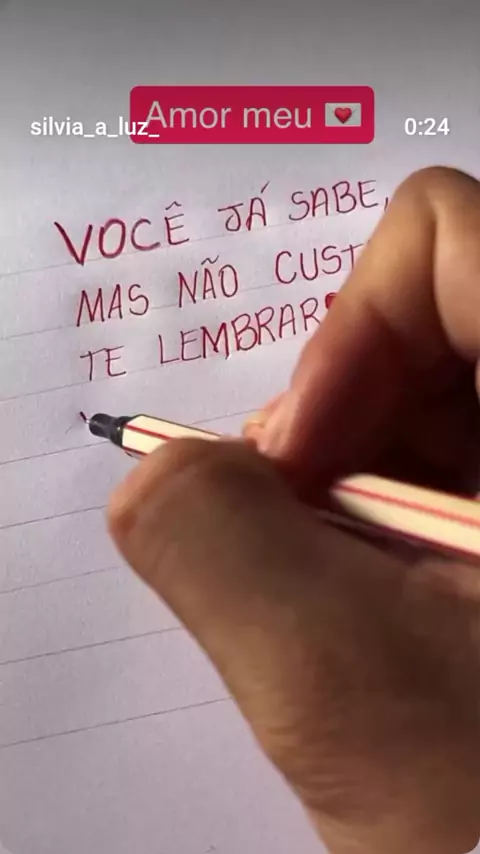 Amor meu 💌
silvia_a_luz_
0:24
VOCÊ JÁ SABE,
MAS NÃO
TE LEMBRAR